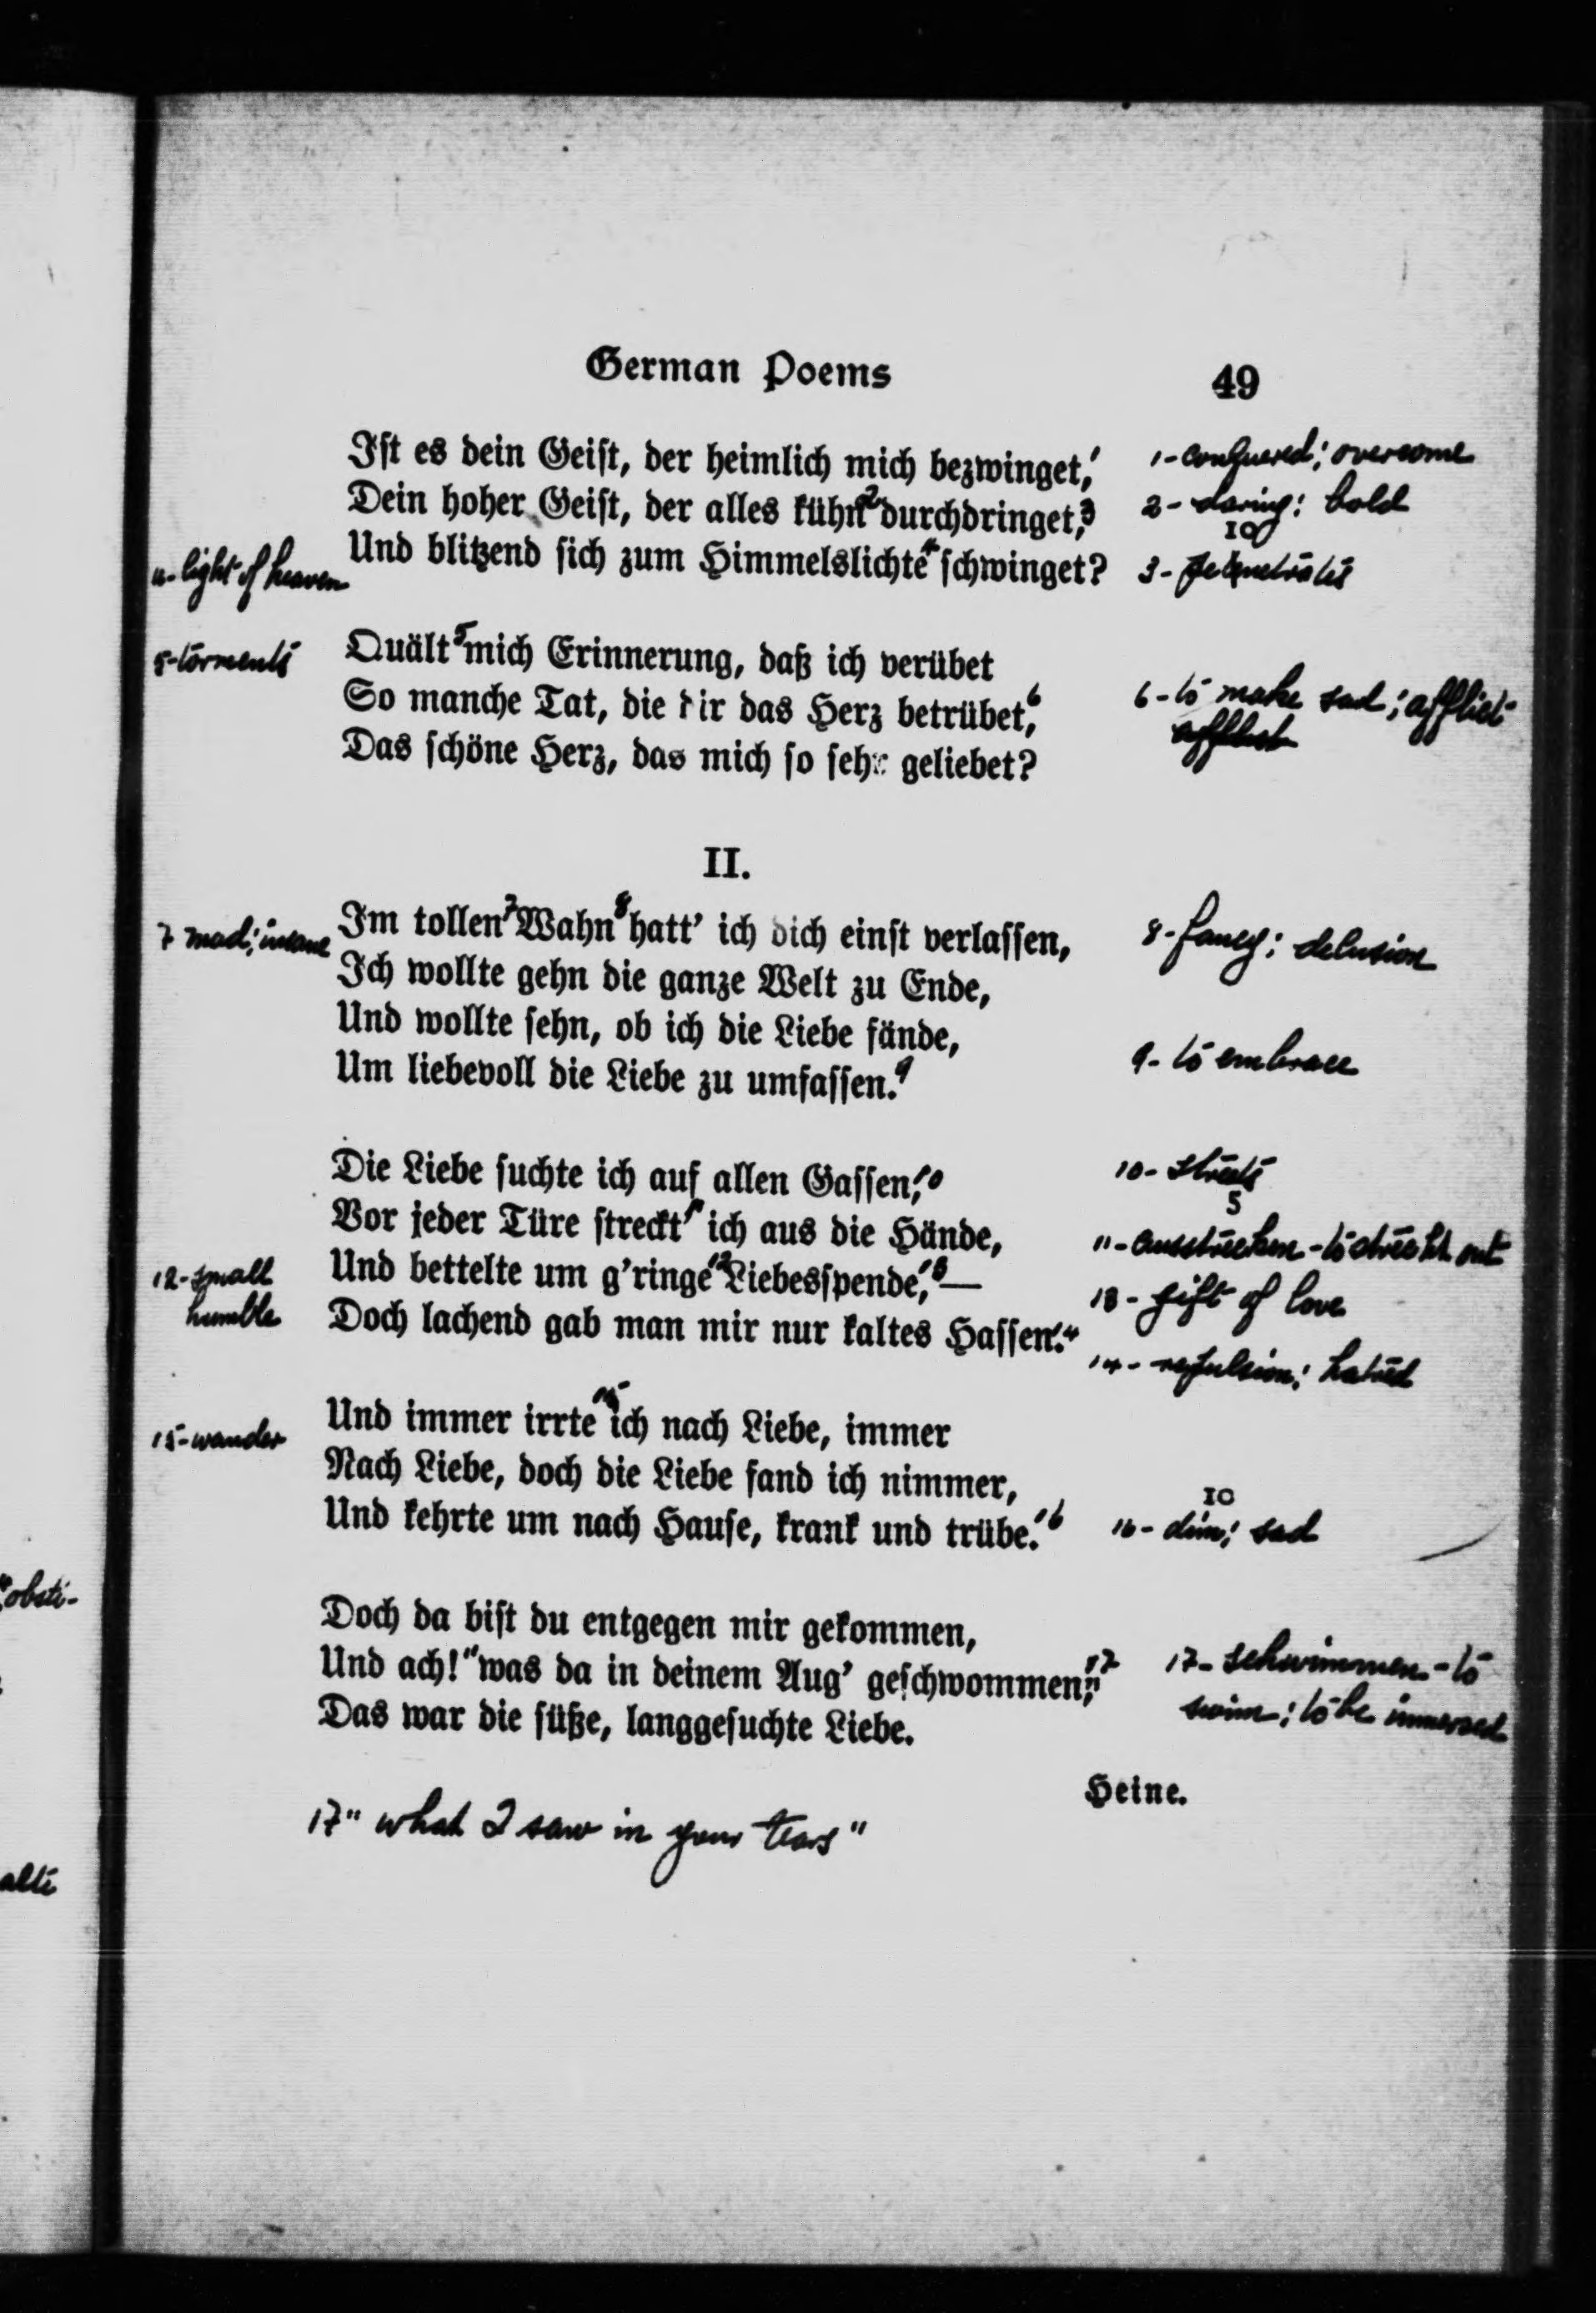 German Poems 49
Ist es dein Geist, der heimlich mich bezwinget,¹ 1-conquered; overcome
Dein hoher Geist, der alles kühn² durchdringet,³ 2-daring; bold
10
Und blitzend sich zum Himmelslichte⁴ schwinget? 3-penetrates
4-light of heaven
5-torments Quält⁵ mich Erinnerung, daß ich verübet
So manche Tat, die dir das Herz betrübet,⁶ 6-to make sad; afflict
Das schöne Herz, das mich so sehr geliebet?
II.
7 mad; insane Im tollen⁷ Wahn⁸ hatt' ich dich einst verlassen, 8-fancy; delusion
Ich wollte gehn die ganze Welt zu Ende,
Und wollte sehn, ob ich die Liebe fände,
Um liebevoll die Liebe zu umfassen.⁹ 9-to embrace
Die Liebe suchte ich auf allen Gassen,¹⁰ 10-streets
5
Vor jeder Türe streckt'¹¹ ich aus die Hände, 11-ausstrecken-to stretch out
12-small humble Und bettelte um g'ringe¹² Liebesspende,¹³— 13-gift of love
Doch lachend gab man mir nur kaltes Hassen.¹⁴ 14-repulsion; hatred
15-wander Und immer irrte¹⁵ ich nach Liebe, immer
Nach Liebe, doch die Liebe fand ich nimmer,
10
Und kehrte um nach Hause, krank und trübe.¹⁶ 16-dim; sad
"obsti-
Doch da bist du entgegen mir gekommen,
Und ach! "was da in deinem Aug' geschwommen,"¹⁷ 17-schwimmen-to
swim; to be immersed
Das war die süße, langgesuchte Liebe.
Heine.
17" what I saw in your tears"